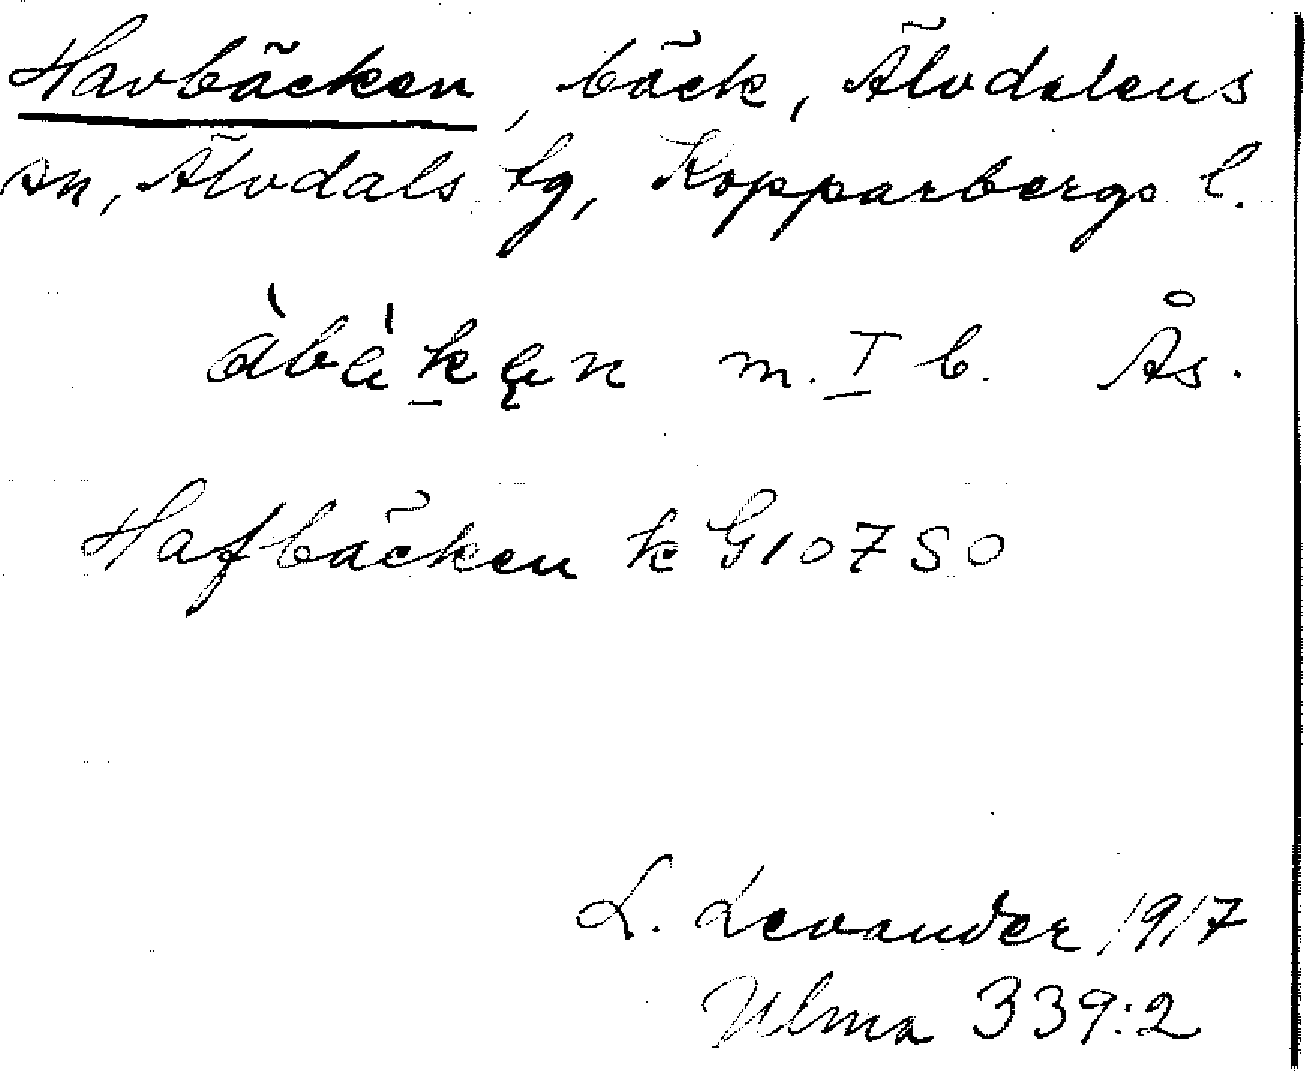 Havbäcken, bäck, Älvdalens
sn, Älvdals tg, Kopparbergs l.
m. I b. Ås.
Hafbäcken k G10750
L. Levander 1917
Ulma 339:2